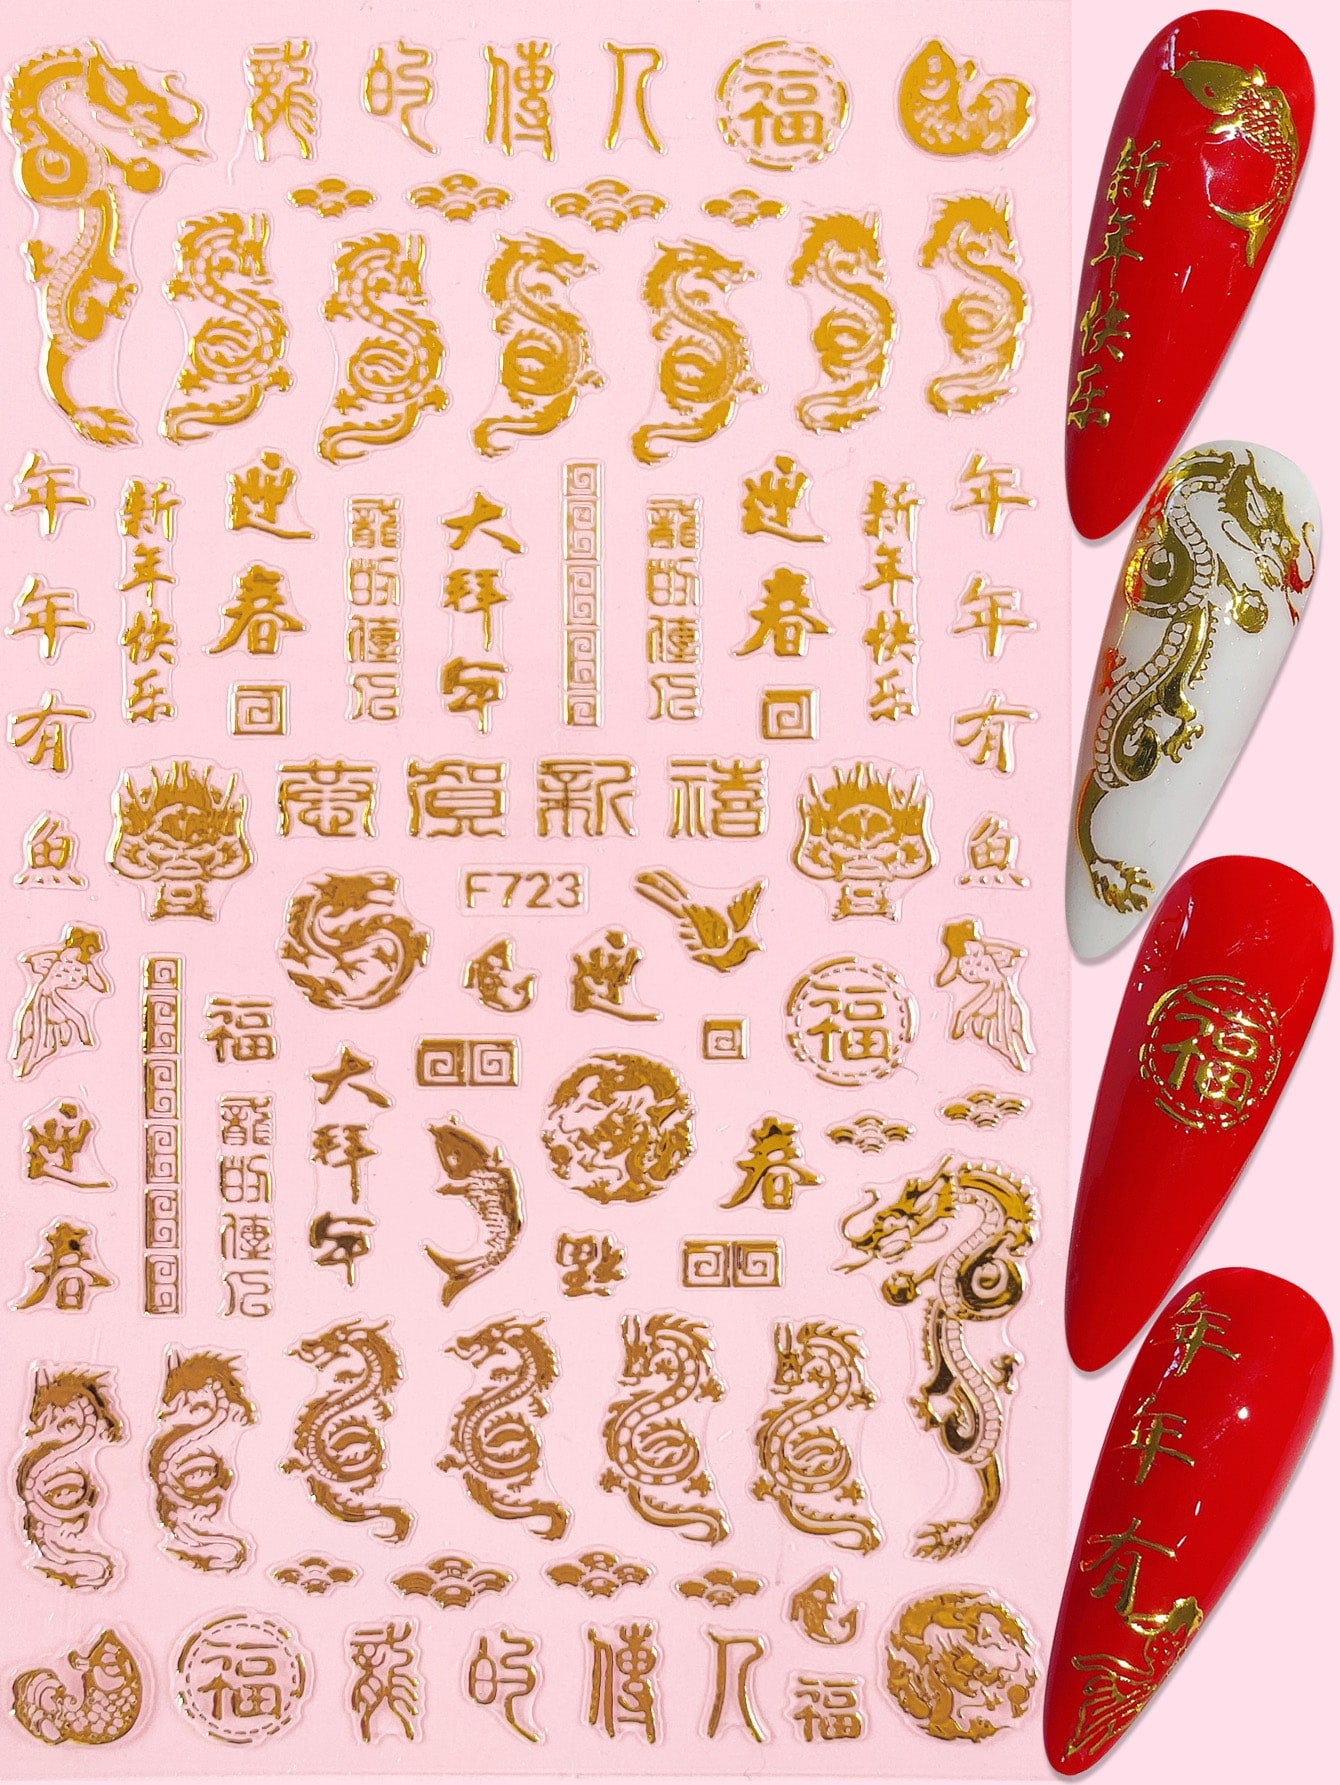 龍的傳人
福
年年有魚
新年快乐
迎春
龍的傳人
大拜年
龍的傳人
迎春
新年快乐
年年有魚
恭賀新禧
F723
迎
福
福
龍的傳人
大拜年
春
迎春
福
龍的傳人
福
新年快乐
福
年年有